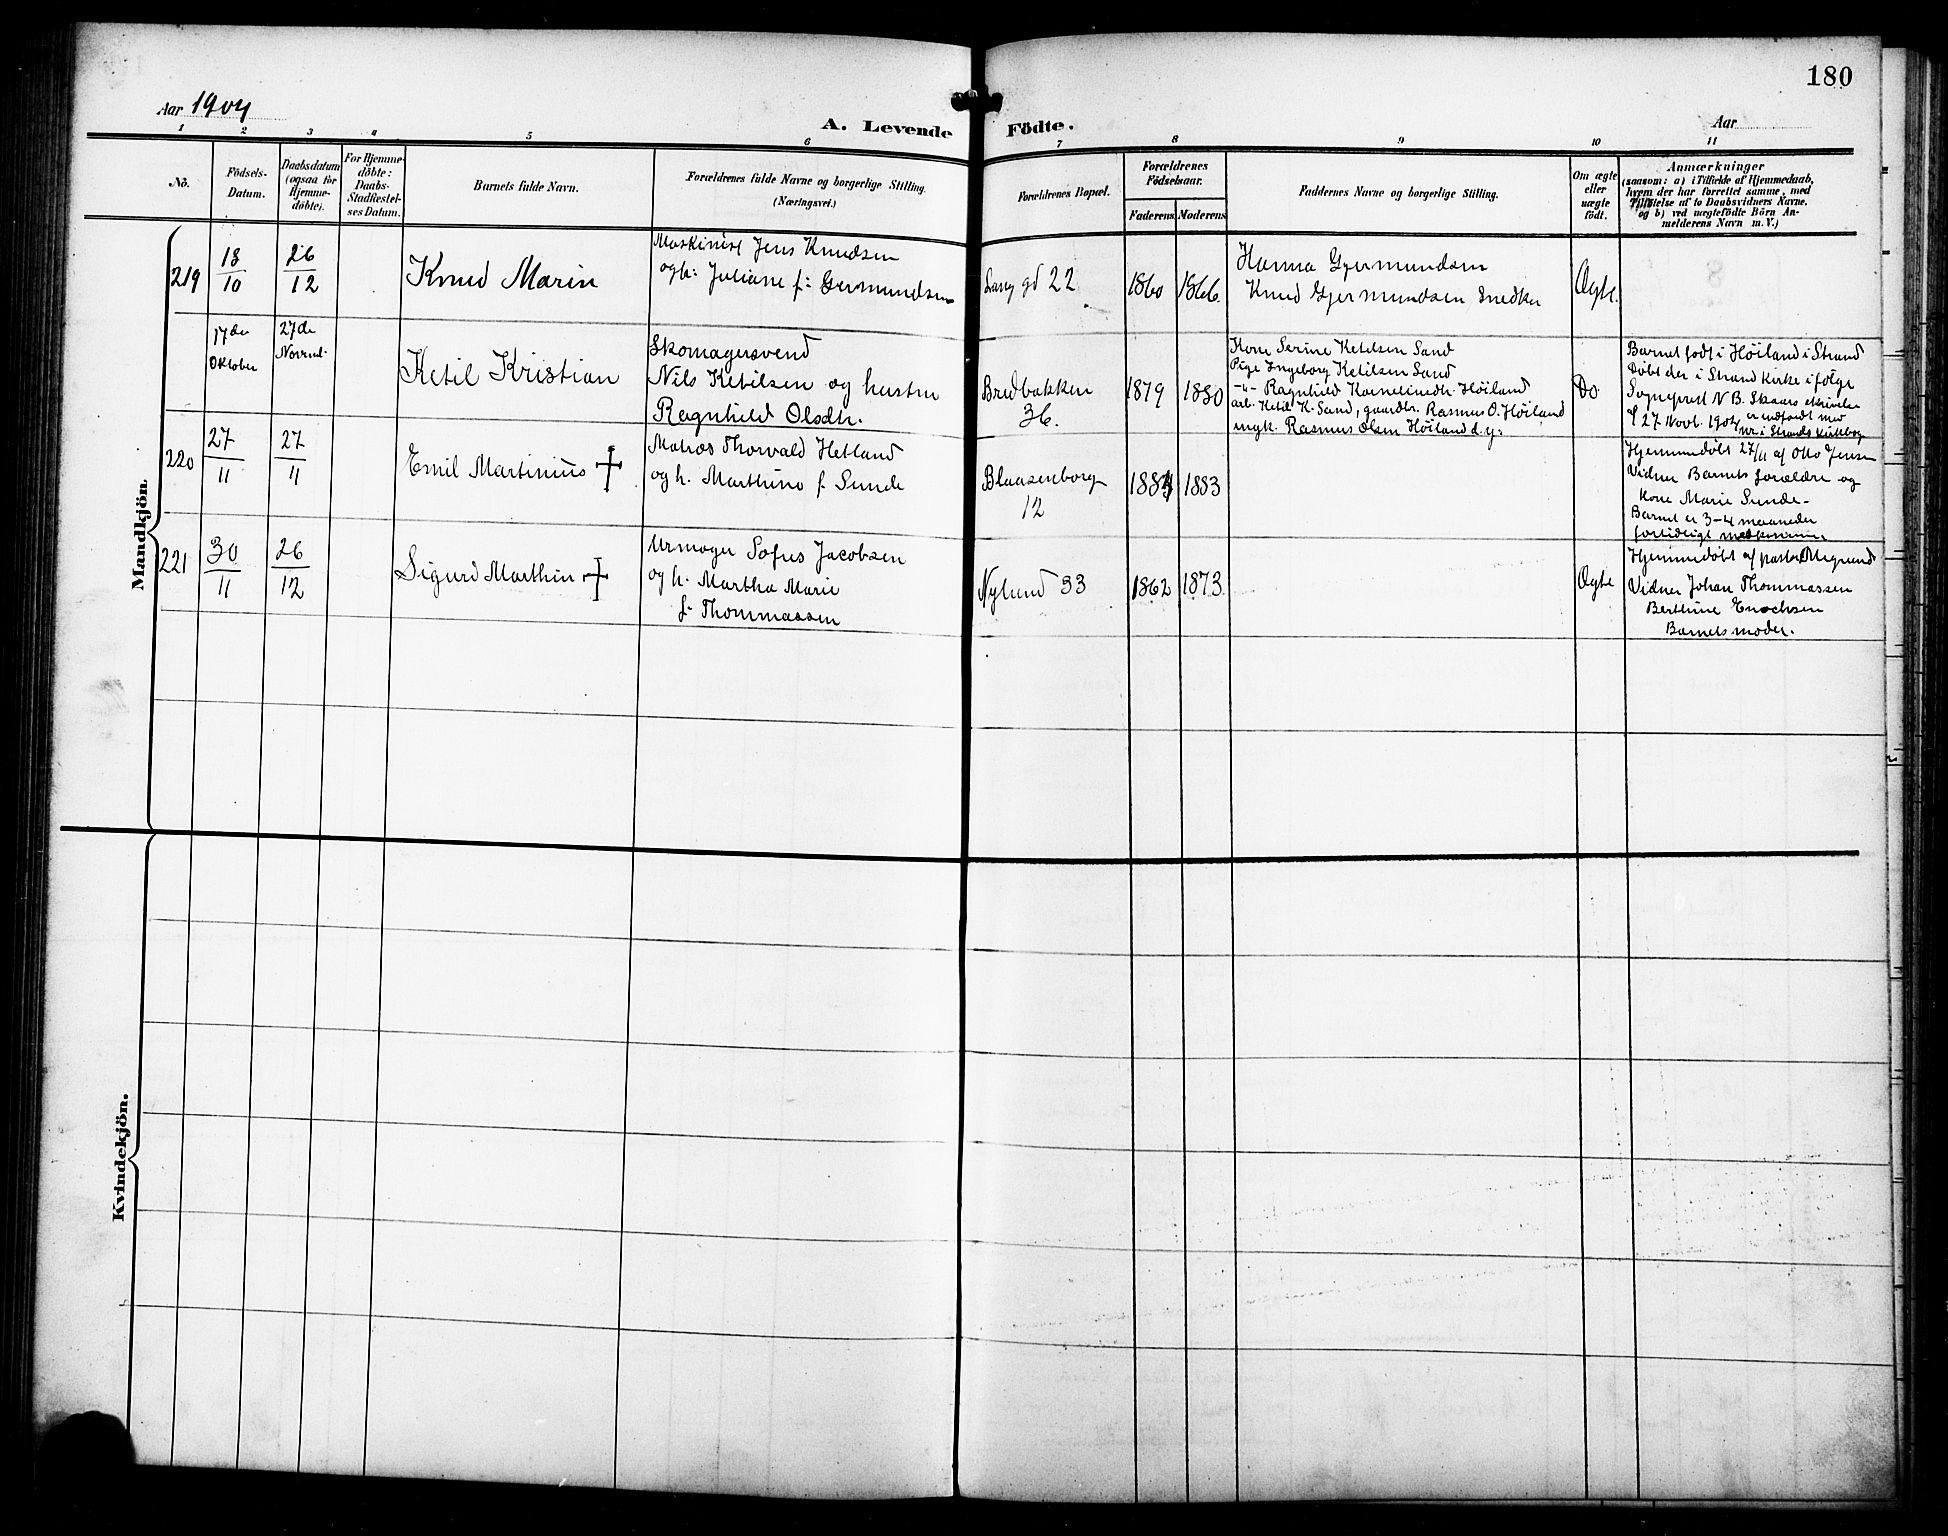 180
Aar 1904
A. Levende Födte.
Aar
1 2 3 4 5 6 7 8 9 10 11
No.
Födsels-
Datum.
Daabsdatum
(ogsaa for
Hjemme-
döbte).
For Hjemme-
döbte:
Daabs-
Stadfæstel-
ses Datum.
Barnets fulde Navn.
Forældrenes fulde Navne og borgerlige Stilling.
(Næringsvei.)
Forældrenes Bopæl.
Forældrenes
Födselsaar.
Faderens. Moderens.
Faddernes Navne og borgerlige Stilling.
Om ægte
eller
uægte
födt.
Anmærkninger
(saasom: a) i Tilfælde af Hjemmedaab,
hvem der har forrettet samme, med
Tilföielse af to Daabsvidners Navne.
og b) ved uægtefödte Börn An-
melderens Navn m. V.)
Mandkjön.
219
18
10
26
12
Knud Marin
Maskinist Jens Knudsen
og h: Juliane f: Germundsen
Lang gd 22
1860
1866.
Hanna Gjermundsen
Knud Gjermundsen Snedker
Ægte.
17de
Oktober
27de
Novmb.
Ketil Kristian
Skomagersvend
Nils Ketilsen og hustru
Ragnhild Olsdtr.
Bredbakken
36.
1879
1880
Kone Serine Ketilsen Sand
Pige Ingeborg Ketilsen Sand
-"- Ragnhild Kornelinedtr. Höiland
arb. Ketil K. Sand, gaardbr. Rasmus O. Höiland
ungk. Rasmus Olsen Höiland d. y:
Do
Barnet födt i Höiland i Strand
Döbt der i Strand Kirke i fölge
Sogneprest N B. Skaars skrivelse
27 Novb. 1904 er indfördt med
nr. i Strands Kirkebog
220
27
11
27
11
Emil Martinius †
Matros Thorvald Hetland
og h. Marthine f. Sunde
Blaasenborg
12
1884
1883
Hjemmedöbt 27/11 af Otto Jensen
Vidner Barnets forældre og
Kone Marie Sunde-
Barnet er 3-4 maaneder
fortidligt
221
30
11
26
12
Sigurd Marthin †
Urmager Sofus Jacobsen
og h. Martha Marie
f- Thommassen
Nylund 33
1862
1873.
Ægte
Hjemmedöbt af pastor
Vidner Johan Thommassen
Berthine Enochsen
Barnets moder.
Kvindekjön.